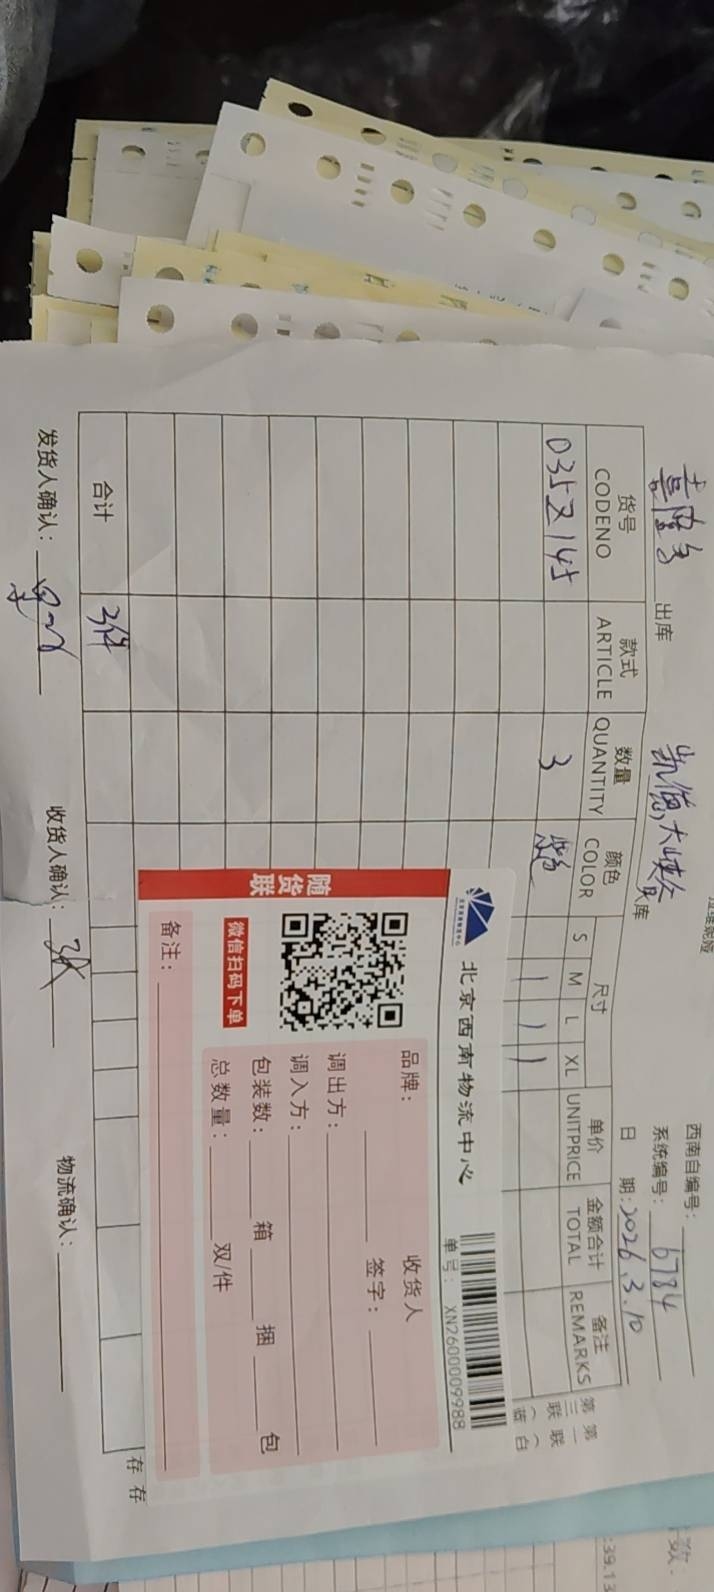 拉维妮娅
西南自编号：
系统编号：6784
嘉陵多 出库
凯德大峡谷 入库
日 期：2026.3.10
货号 款式 数量 颜色 尺寸 单价 金额合计 备注
CODENO ARTICLE QUANTITY COLOR S M L XL UNITPRICE TOTAL REMARKS
0352145 3 1 1 1
第一联（白
第三联（蓝
存
存
北京西南物流中心
单号： XN2600009988
收货人
品牌： 签字：
调出方：
调入方：
包装数： 箱 捆 包
总数量： 双/件
微信扫码下单
随货联
备注：
合计 3件
发货人确认： 收货人确认： 张 物流确认：
数：
:39.13